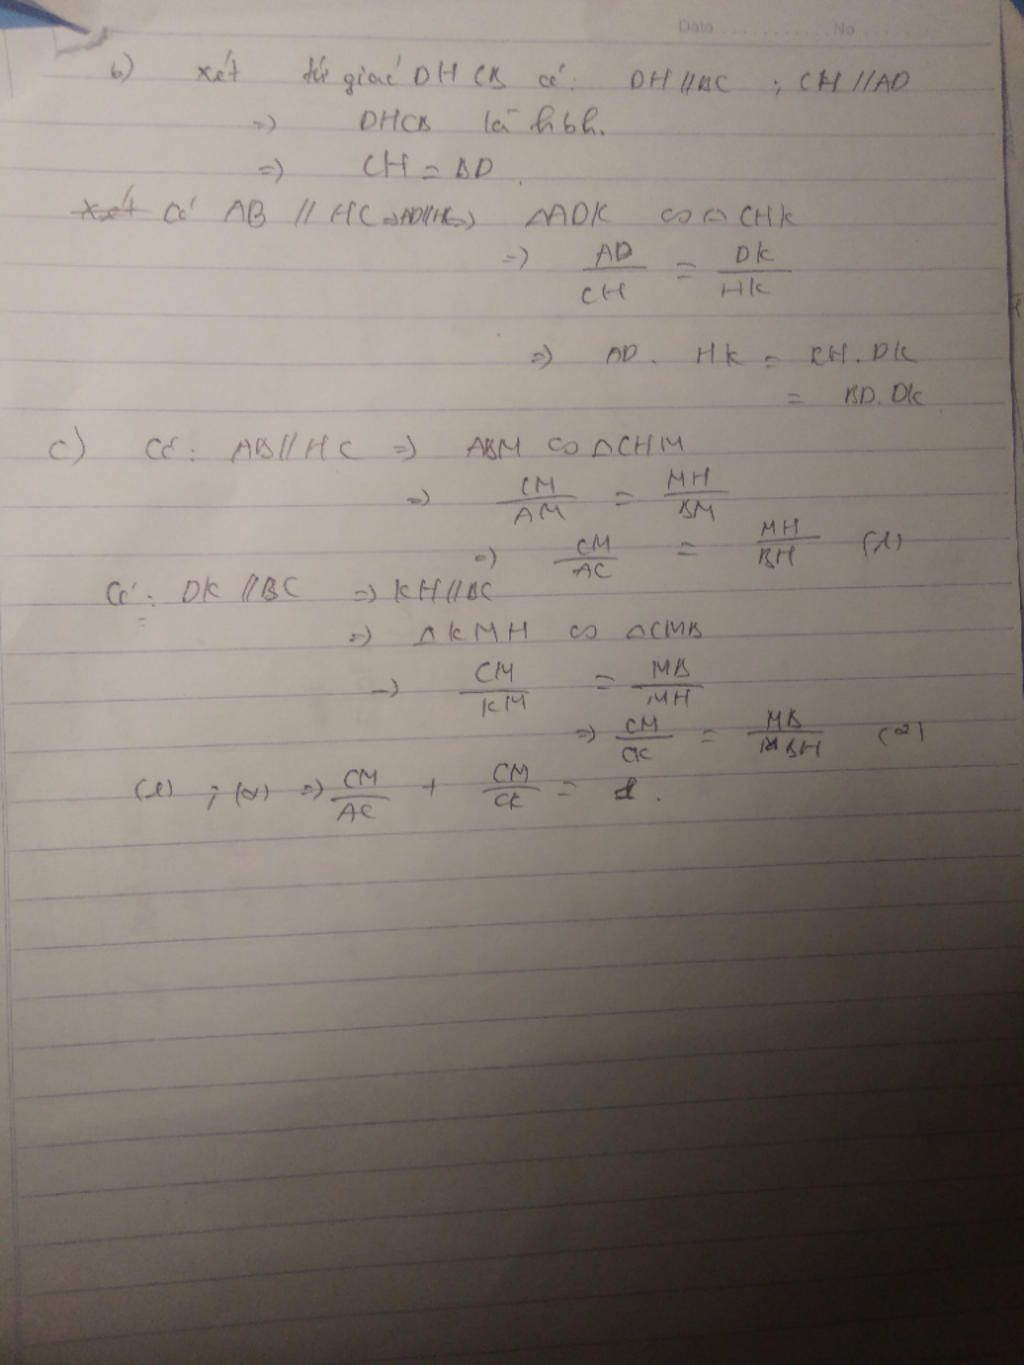 Date ............ No ........
b) xét tứ giác DHCB có: DH//BC ; CH//AD
=) DHCB là hbh.
=) CH = BD.
Xét Có AB // HC => AD//HC =) ΔADK ∽ ΔCHK
=) AD/CH = DK/HK
=) AD. HK = CH. DK
= BD. DK
c) Có: AB//HC =) ABM ∽ ΔCHM
=) CM/AM = MH/BM
=) CM/AC = MH/BH (1)
Có: DK //BC =) KH//BC
=) ΔKMH ∽ ΔCMB
=) CM/KM = MB/MH
=) CM/CK = MB/BH (2)
(1) ; (2) =) CM/AC + CM/CK = 1.